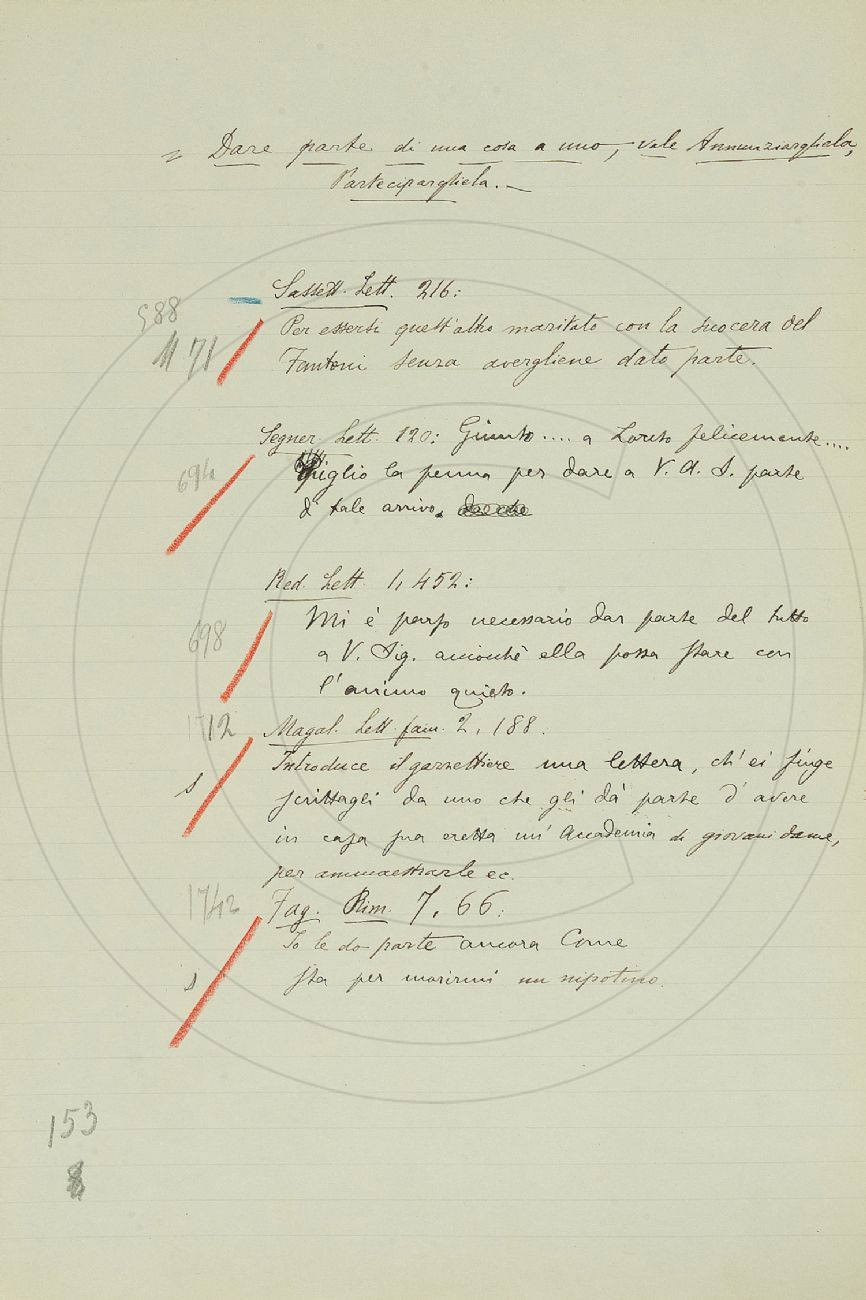 = Dare parte di una cosa a uno, vale Annunziargliela,
Partecipargliela. —
Sassett. Lett. 216:
588
1171
Per essersi quest'altro maritato con la suocera del
Fantoni senza avergliene dato parte.
Segner. Lett. 120: Giunto .... a Loreto felicemente ....
694
Piglio la penna per dare a V. A. S. parte
di tale arrivo.
Red. Lett. 1, 452:
698
Mi è parso necessario dar parte del tutto
a V. Sig. acciocchè ella possa stare con
l'animo quieto.
1712
Magal. Lett. fam. 2, 188.
Introduce il gazzettiere una lettera, ch'ei finge
s
scrittagli da uno che gli dà parte d'avere
in casa sua eretta un'Accademia di giovani dame,
per ammaestrarle ec.
1742
Fag. Rim. 7, 66:
Io le do parte ancora Come
s
sta per morirmi un nipotino.
153